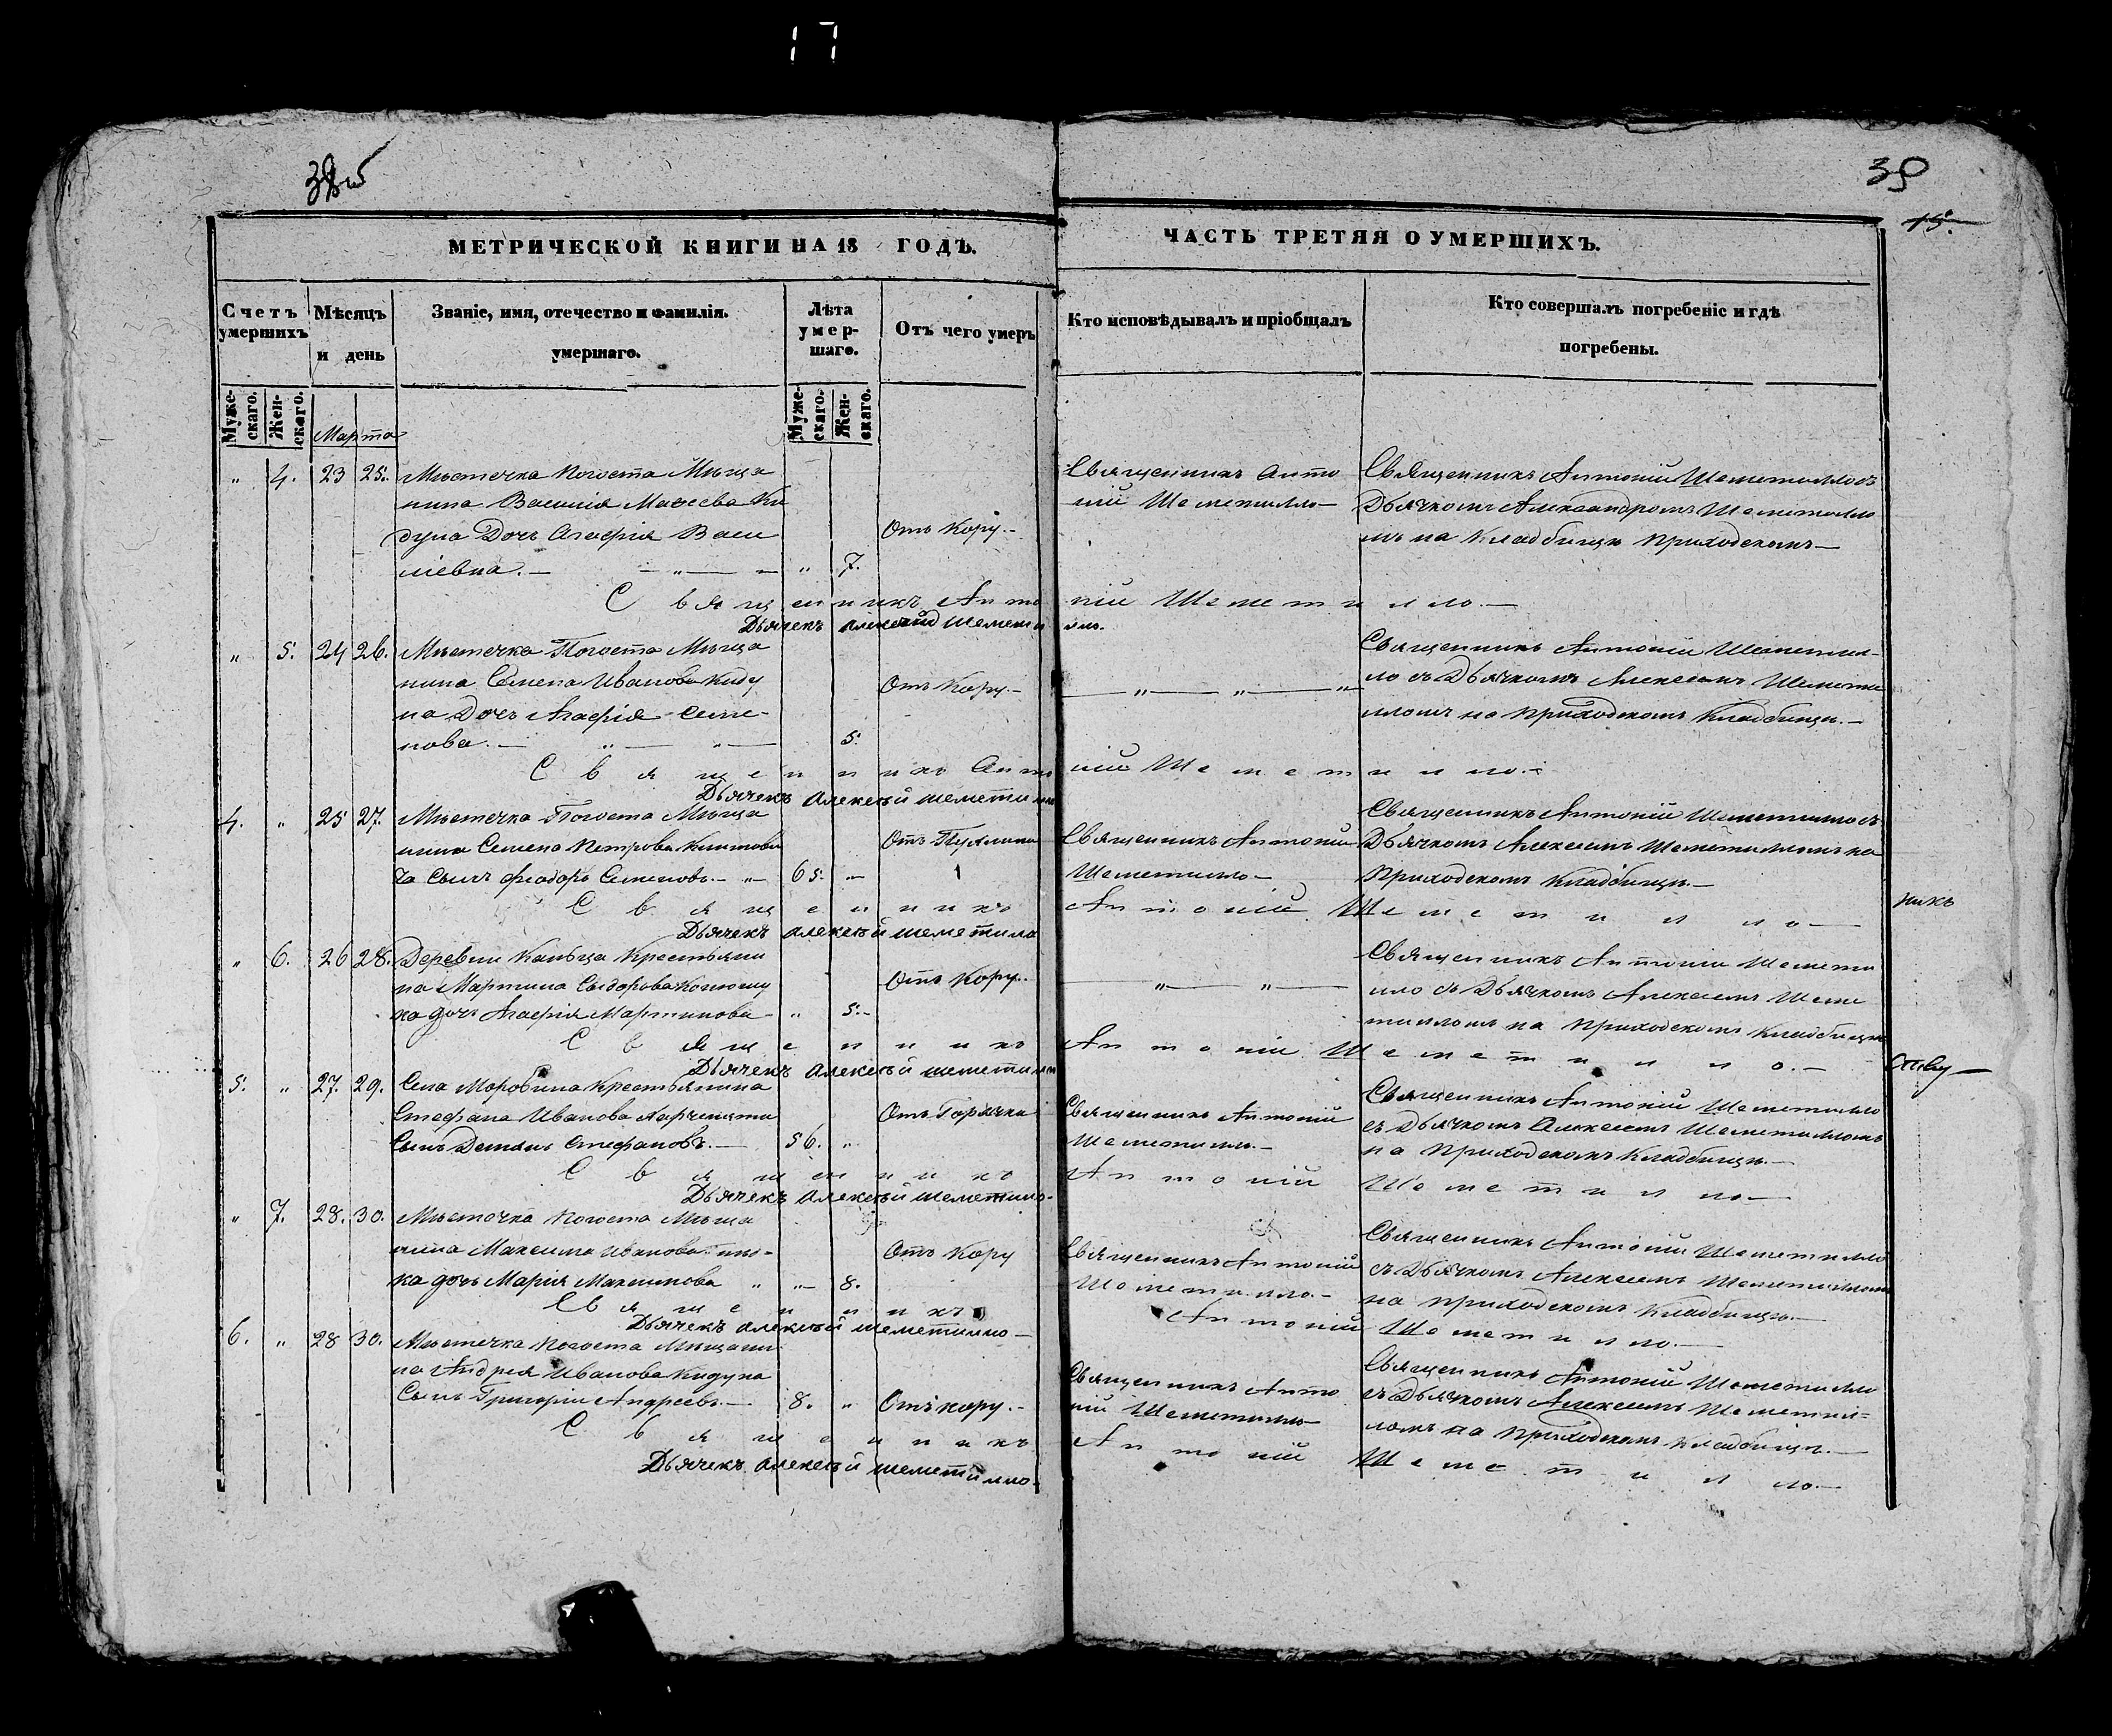 17
39
15.
МЕТРИЧЕСКОЙ КНИГИ НА 18 ГОДЪ.
ЧАСТЬ ТРЕТЯЯ О УМЕРШИХЪ.
Счетъ умершихъ
Мѣсяцъ и день
Званіе, имя, отечество и фамилія.
умершаго.
Лѣта умер-
шаго.
Отъ чего умеръ
Кто исповѣдывалъ и пріобщалъ
Кто совершалъ погребеніе и гдѣ
погребены.
Муже-
скаго.
Жен-
скаго.
Марта
Муже-
скаго.
Жен-
скаго.
" 4. 23 25. Мѣстечка Погоста Мѣща
нина Василія Маѳеева Ки
дуна Дочь Агафія Васи
ліевна. — " 7.
Отъ Кору. —
Священникъ Анто
ній Шеметилло —
Священникъ Антоній Шеметилло съ
Дьячкомъ Александромъ Шеметилло
мъ на Кладбищѣ приходскомъ —
Священникъ Антоній Шеметилло. —
Дьячекъ Алексѣй Шеметилло.
" 5. 24 26. Мѣстечка Погоста Мѣща
нина Семена Иванова Киду
на Дочь Агафія Семе-
нова. — " — " — 5.
Отъ Кору. —
— " — " — "
Священникъ Антоній Шеметил-
ло съ Дьячкомъ Алексѣемъ Шемети
лломъ на приходскомъ Кладбищѣ. —
Священникъ Антоній Шеметилло. —
Дьячекъ Алексѣй Шеметилло
4. " 25 27. Мѣстечка Погоста Мѣща
нина Семена Петрова
сынъ Феодоръ Семеновъ. — " — 65. " —
Отъ
Священникъ Антоній
Шеметилло —
Священникъ Антоній Шеметилло съ
Дьячкомъ Алексѣемъ Шеметилломъ на
Приходскомъ Кладбищѣ. —
Священникъ Антоній Шеметилло —
никъ
Дьячекъ Алексѣй Шеметилло
" 6. 26 28. Деревни Крестьяни
на Мартина Сыдорова
ка дочь Агафія Мартинова " 5. —
Отъ Кору.
— " — " —
Священникъ Антоній Шемети
лло съ Дьячкомъ Алексѣемъ Шеме
тилломъ на приходскомъ кладбищѣ
Священникъ Антоній Шеметилло. —
Дьячекъ Алексѣй Шеметилло
5. " 27. 29. Села Моровина Крестьянина
Стефана Иванова
Сынъ Демянъ Стефановъ. — 56. "
Отъ Горячки
Священникъ Антоній
Шеметилло. —
Священникъ Антоній Шеметилло
съ Дьячкомъ Алексѣемъ Шеметилломъ
на Приходскомъ Кладбищѣ. —
Священникъ Антоній Шеметилло —
Дьячекъ Алексѣй Шеметилло-
" 7. 28. 30. Мѣстечка Погоста Мѣща
нина Максима Иванова
ка дочь Марія Максимова " " — 8.
Отъ Кору
Священникъ Антоній
Шеметилло. —
Священникъ Антоній Шеметилло
съ Дьячкомъ Алексѣемъ Шеметилломъ
на приходскомъ Кладбищѣ. —
Священникъ Антоній Шеметилло. —
Дьячекъ Алексѣй Шеметилло —
6. " 28 30. Мѣстечка Погоста Мѣщани
на Андрея Иванова Кидуна
Сынъ Григорій Андреевъ. — 8. " Отъ кору. —
Священникъ Анто
ній Шеметилло
Священникъ Антоній Шеметилло
съ Дьячкомъ Алексѣемъ Шеметил=
ломъ на Приходскомъ Кладбищѣ. —
Священникъ Антоній Шеметилло. —
Дьячекъ Алексѣй Шеметилло.